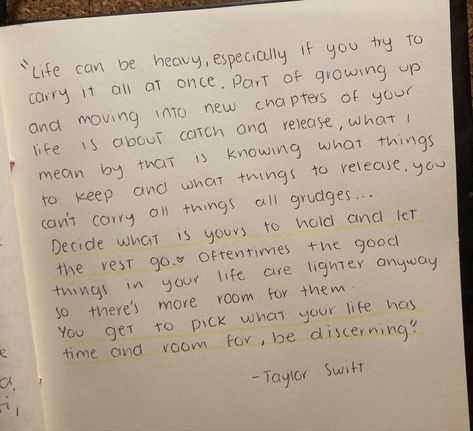 "Life can be heavy, especially if you try to
carry it all at once. Part of growing up
and moving into new chapters of your
life is about catch and release, what I
mean by that is knowing what things
to keep and what things to release. you
can't carry all things all grudges...
Decide what is yours to hold and let
the rest go.♥ oftentimes the good
things in your life are lighter anyway
so there's more room for them.
You get to pick what your life has
time and room for, be discerning."
-Taylor Swift
e
a.